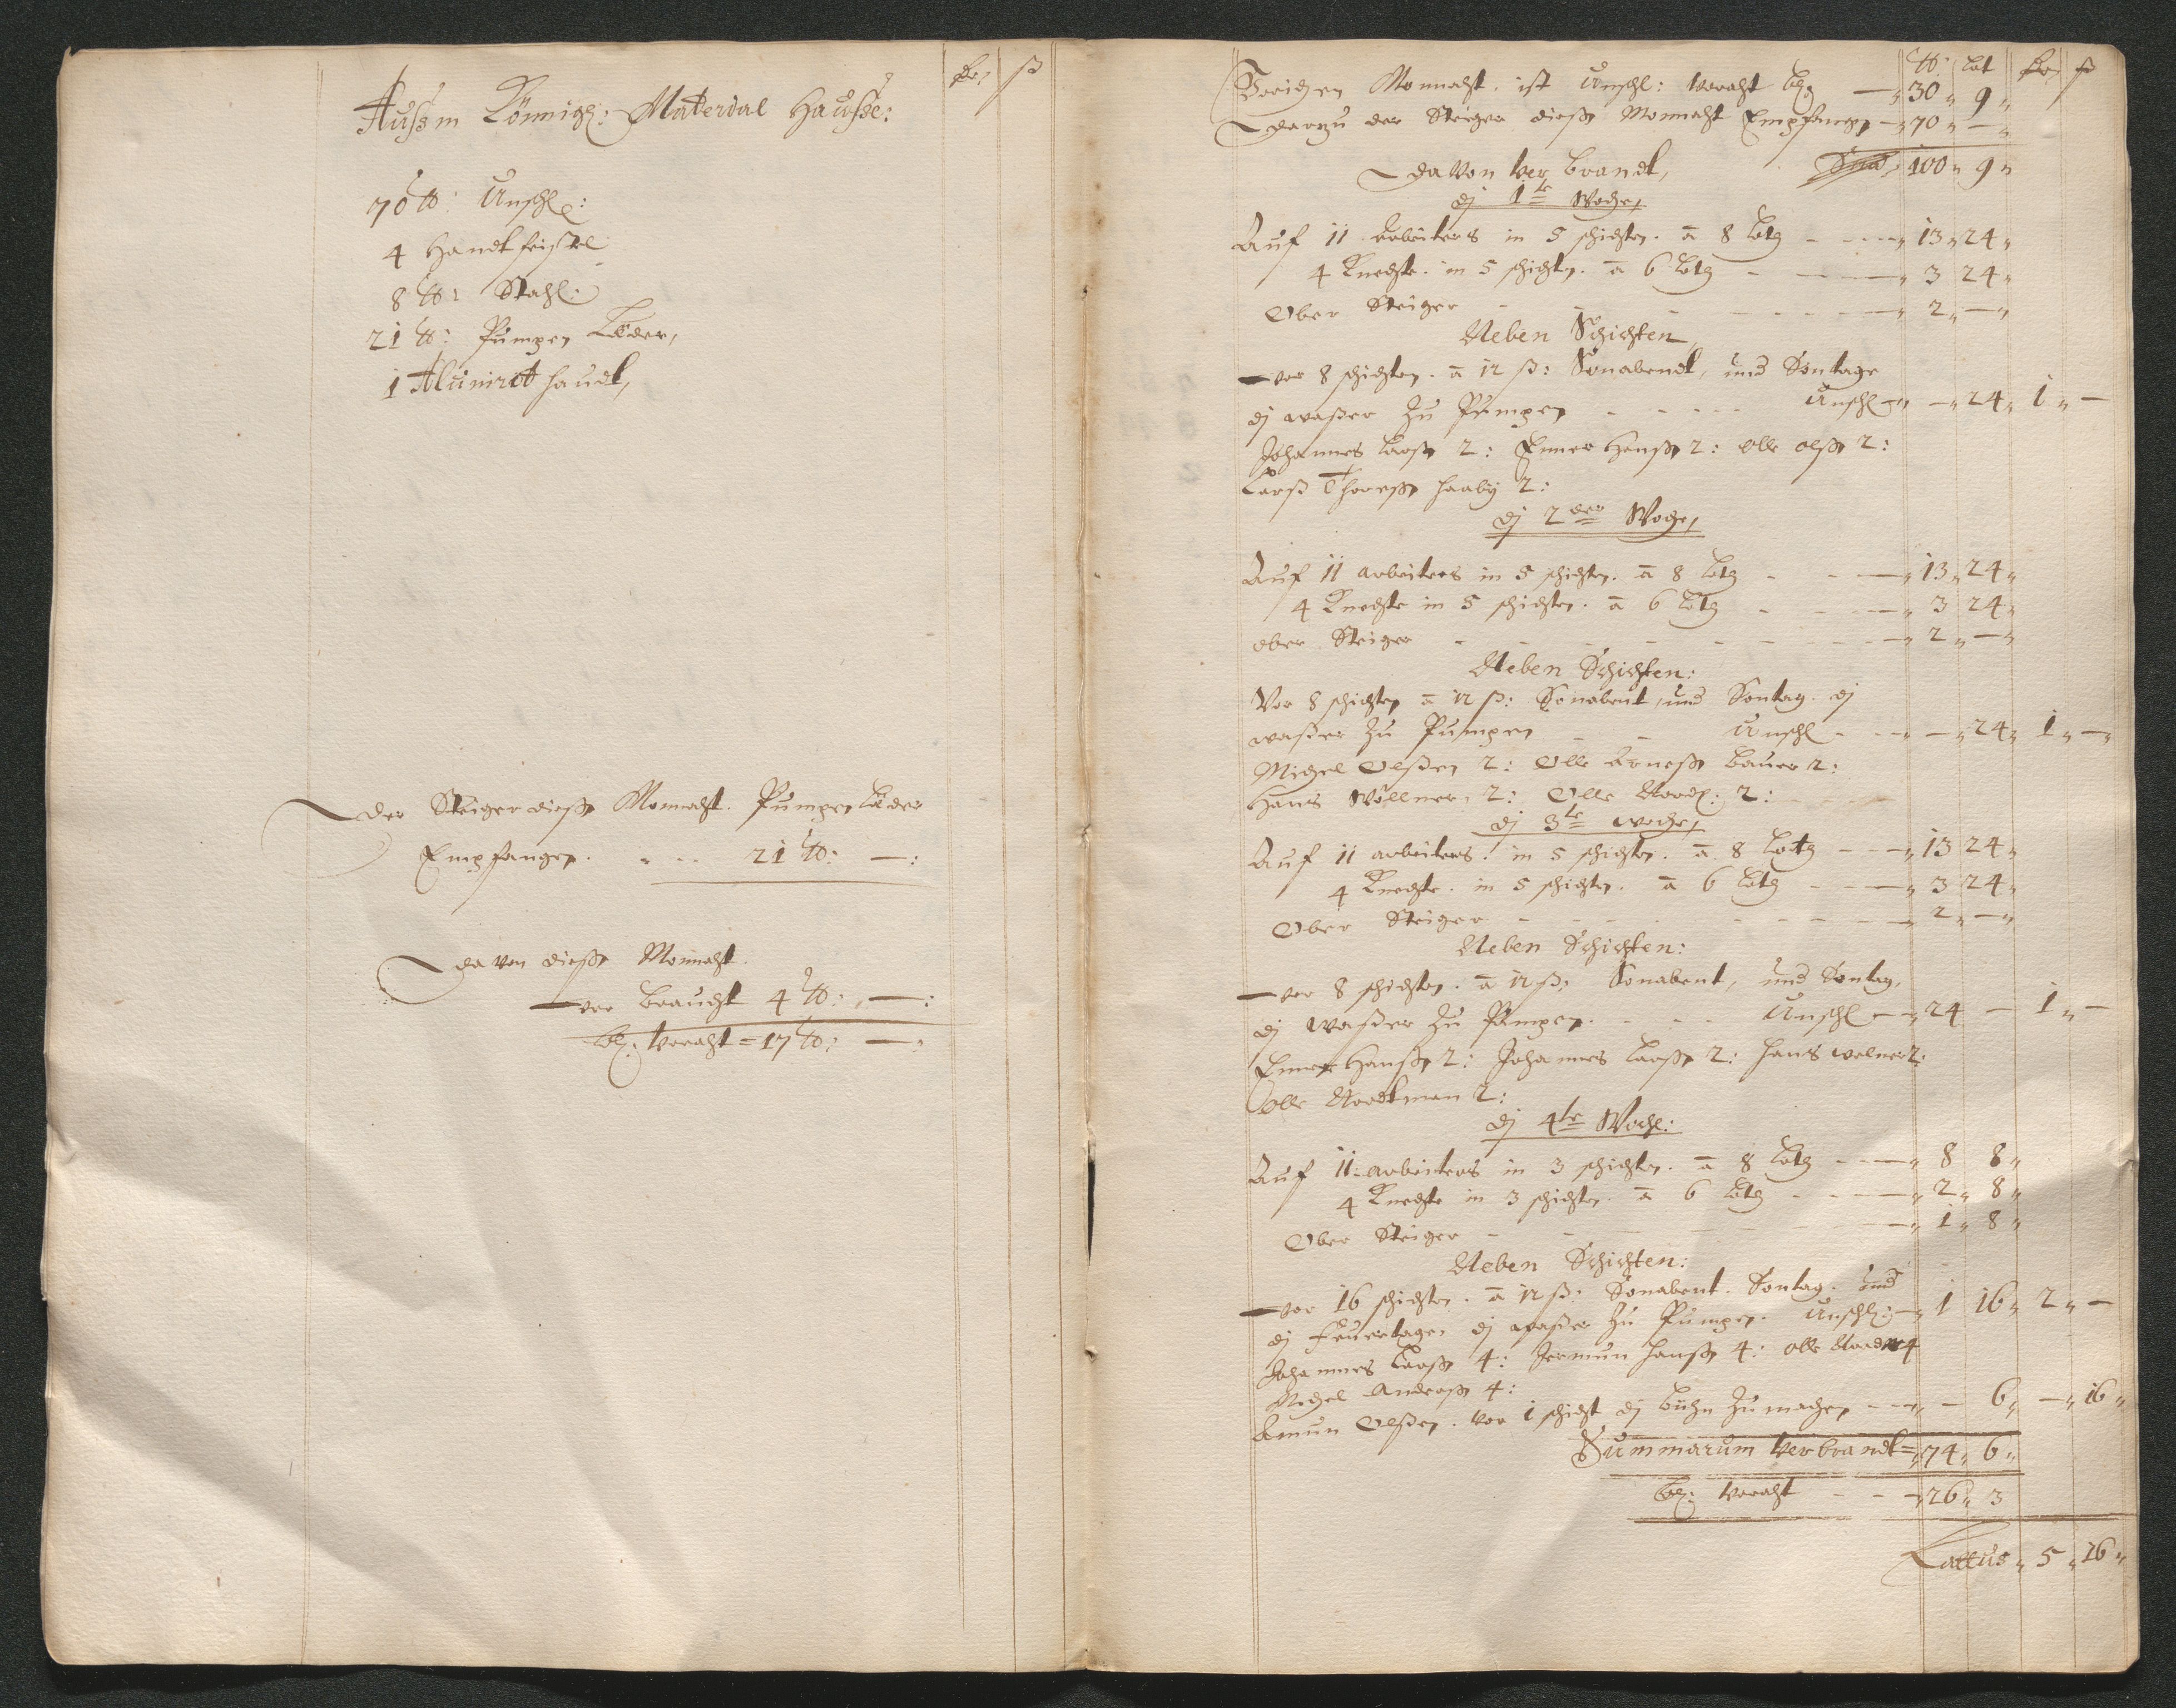 Aussm Königl: Material Hausse:
70 ℔: Unschl:
4 Handt feistel
8 ℔: Stahl:
21 ℔: Pumpen Läder,
1 Alunirot haudt,
der Steiger diesse Monnaht. Pumpen läder
Empfangen. - - - 21 ℔: —:
da von diesse Monnaht.
ver braucht 4 ℔: —:
bl: Voraht = 17 ℔: —:
℔: lot
Vorigen Monnaht. ist Unschl: voraht bl: — 30 " 9 "
darzu der Steiger diesse Monnaht Empfangen — 70 " — "
100 " 9 "
davon ver brandt,
dj 1te Woche,
Auf 11 Arbeiters in 5 schichten. a 8 lotg - - - 13 " 24 "
4 Knechte. in 5 schichten. a 6 lotg - - 3 24 "
Ober Steiger - - - - - 2 " — "
Neben Schichten,
vor 8 schichten. a 12 ß: Sonabendt, und Sontage
dj wasser zu Pumpen - - - - Unschl — " — " 24 " 1 " —
Johannes larssen 2: Enner Hanssen 2: Olle olssen 2:
Larss Thorssen haaby 2:
dj 2der Woche,
Auf 11 arbeiters in 5 schichten. a 8 lotg - - — " 13 " 24 "
4 Knechte in 5 schichten. a 6 lotg - - — " 3 24 "
ober Steiger - - - - - - 2 " — "
Neben Schichten:
Vor 8 schichten a 12 ß: Sonabent, und Sontag. dj
wasser zu Pumpen - - Unschl - - — " 24 " 1 " — "
Michel Olssen 2: Olle Arnessen bauer 2:
Hans Wöllner 2: Olle Nordl: 2:
dj 3te woche,
Auf 11 arbeiters. in 5 schichten. a 8 Lotg - - — " 13 24 "
4 Knechte. in 5 schichten. a 6 lotg - - — " 3 24 "
Ober Steiger - - - - - - 2 " — "
Neben Schichten:
vor 8 schichten. a 12 ß: Sonabent, und Sontag,
dj Wasser zu Pumpen. - - - Unschl — " 24 — 1 " —
Enner Hanssen 2: Johannes Larssen 2: hans wolner 2:
Olle Nordtman 2:
dj 4te Woche:
Auf 11 arbeiters in 3 schichten. a 8 lotg - - — " 8 8 "
4 Knechte in 3 schichten. a 6 lotg - - — " 2 " 8 "
Ober Steiger - - - - - — " 1 " 8 "
Neben Schichten:
vor 16 schichten. a 12 ß: Sonabent. Sontag. und
dj feuertagen dj wasser zu Pumpen. Unschl: — " 1 16 " 2 " —
Johannes Larssen 4: Jermun hanssen 4: olle Nord 4
Michel Anderssen 4:
Amun Olssen. vor 1 schicht dj bühn zu machen - - — " — 6 " — " 16 "
Summarum Verbrandt = " 74 " 6 "
bl: Voraht - - — " 26 " 3
Lattus " 5 " 16 "